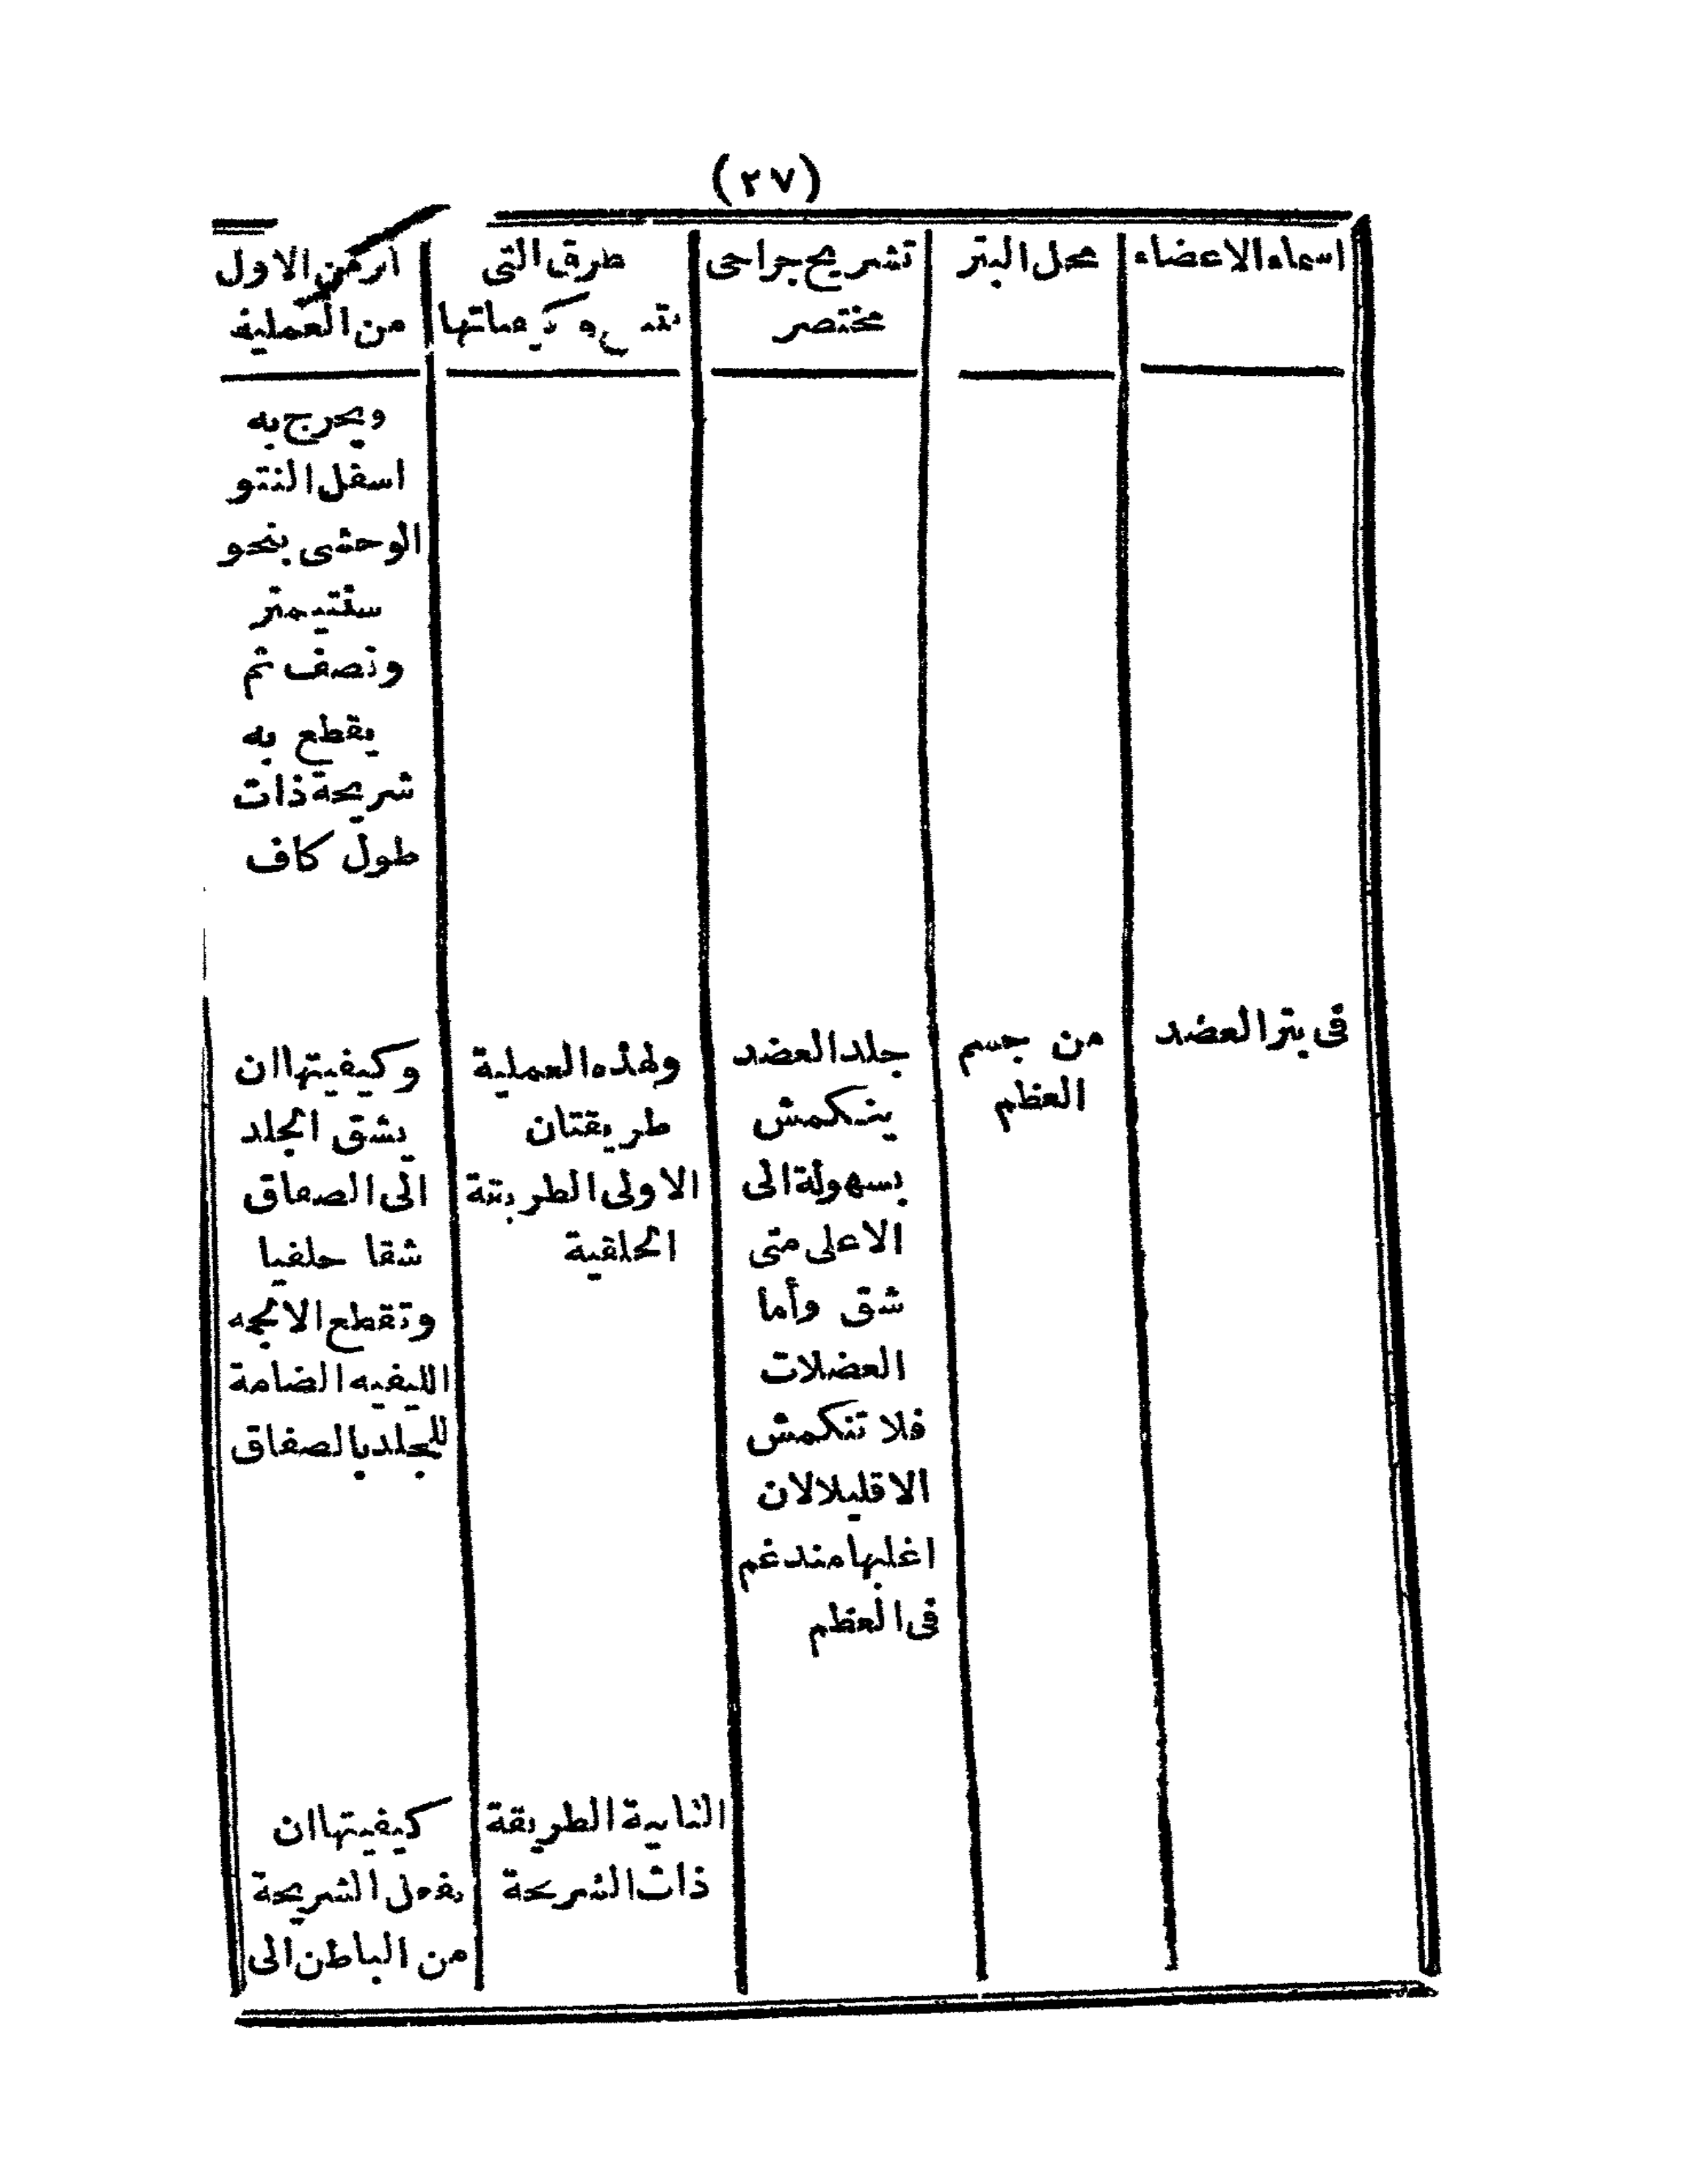 (٢٧)
اسماء الاعضاء
محل البتر
تشريح جراحى
مختصر
طرق التى
وكيفياتها
الزمن الاول
من العملية
ويخرج به
اسفل النتو
الوحشى بنحو
سنتيمتر
ونصف ثم
يقطع به
شريحة ذات
طول كاف
فى بتر العضد
من جسم
العظم
جلد العضد
ينكمش
بسهولة الى
الاعلى متى
شق وأما
العضلات
فلا تنكمش
الا قليلا لان
اغلبها مندغم
فى العظم
ولهذه العملية
طريقتان
الاولى الطريقة
الحلقية
وكيفيتها ان
يشق الجلد
الى الصفاق
شقا حلقيا
وتقطع الالجمه
الليفيه الضامة
للجلد بالصفاق
الثانية الطريقة
ذات الشريحة
كيفيتها ان
يفعل الشريحة
من الباطن الى